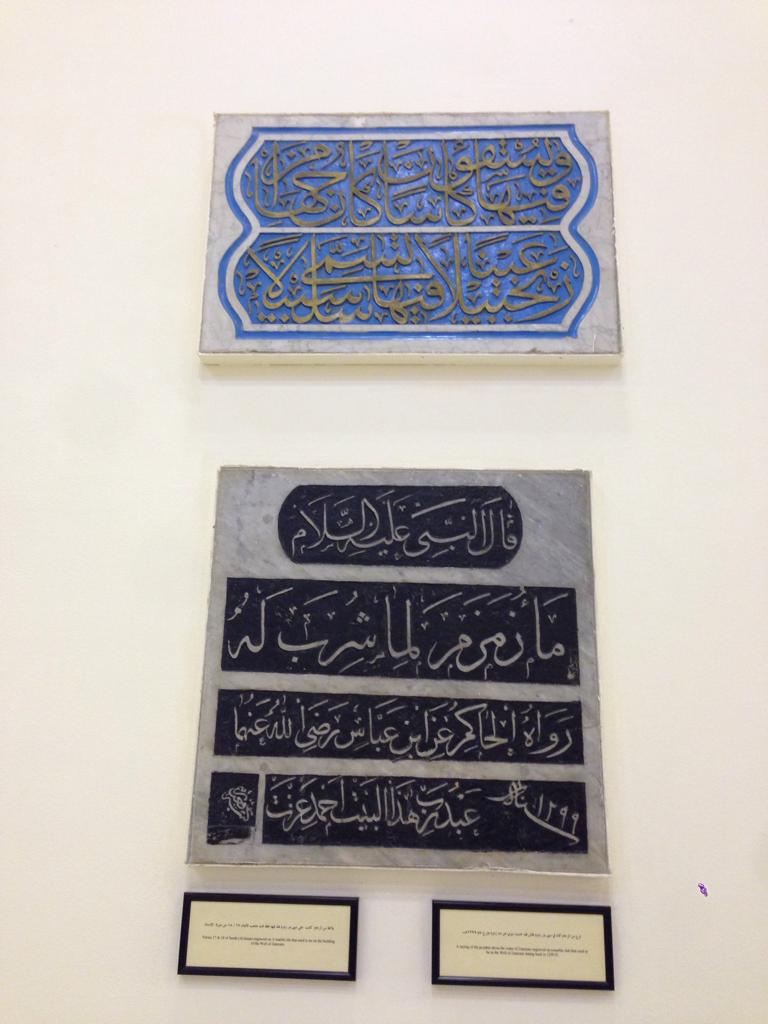 ويسقون فيها كأسا كان مزاجها
زنجبيلا عينا فيها تسمى سلسبيلا
قال النبي عليه السلام
ماء زمزم لما شرب له
رواه الحاكم عن ابن عباس رضي الله عنهما
١٢٩٩ عبد رب هذا البيت احمد عزت
Verses 17 & 18 of Surah Al-Insan engraved on a marble tile that used to be on the building
of the Well of Zamzam.
A saying of the prophet about the water of Zamzam engraved on a marble slab that used to
be in the Well of Zamzam dating back to 1299 H.